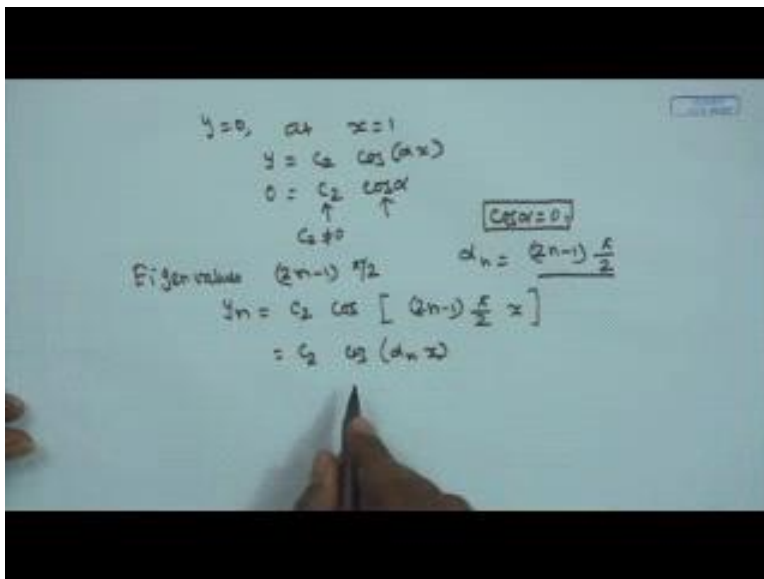 y=0, at x=1
y = C2 cos(αx)
0 = C2 cosα
↑ ↑
C2≠0
cosα=0,
αn = (2n-1) π/2
Eigenvalues (2n-1) π/2
yn = C2 cos [ (2n-1) π/2 x ]
= C2 cos (αn x)